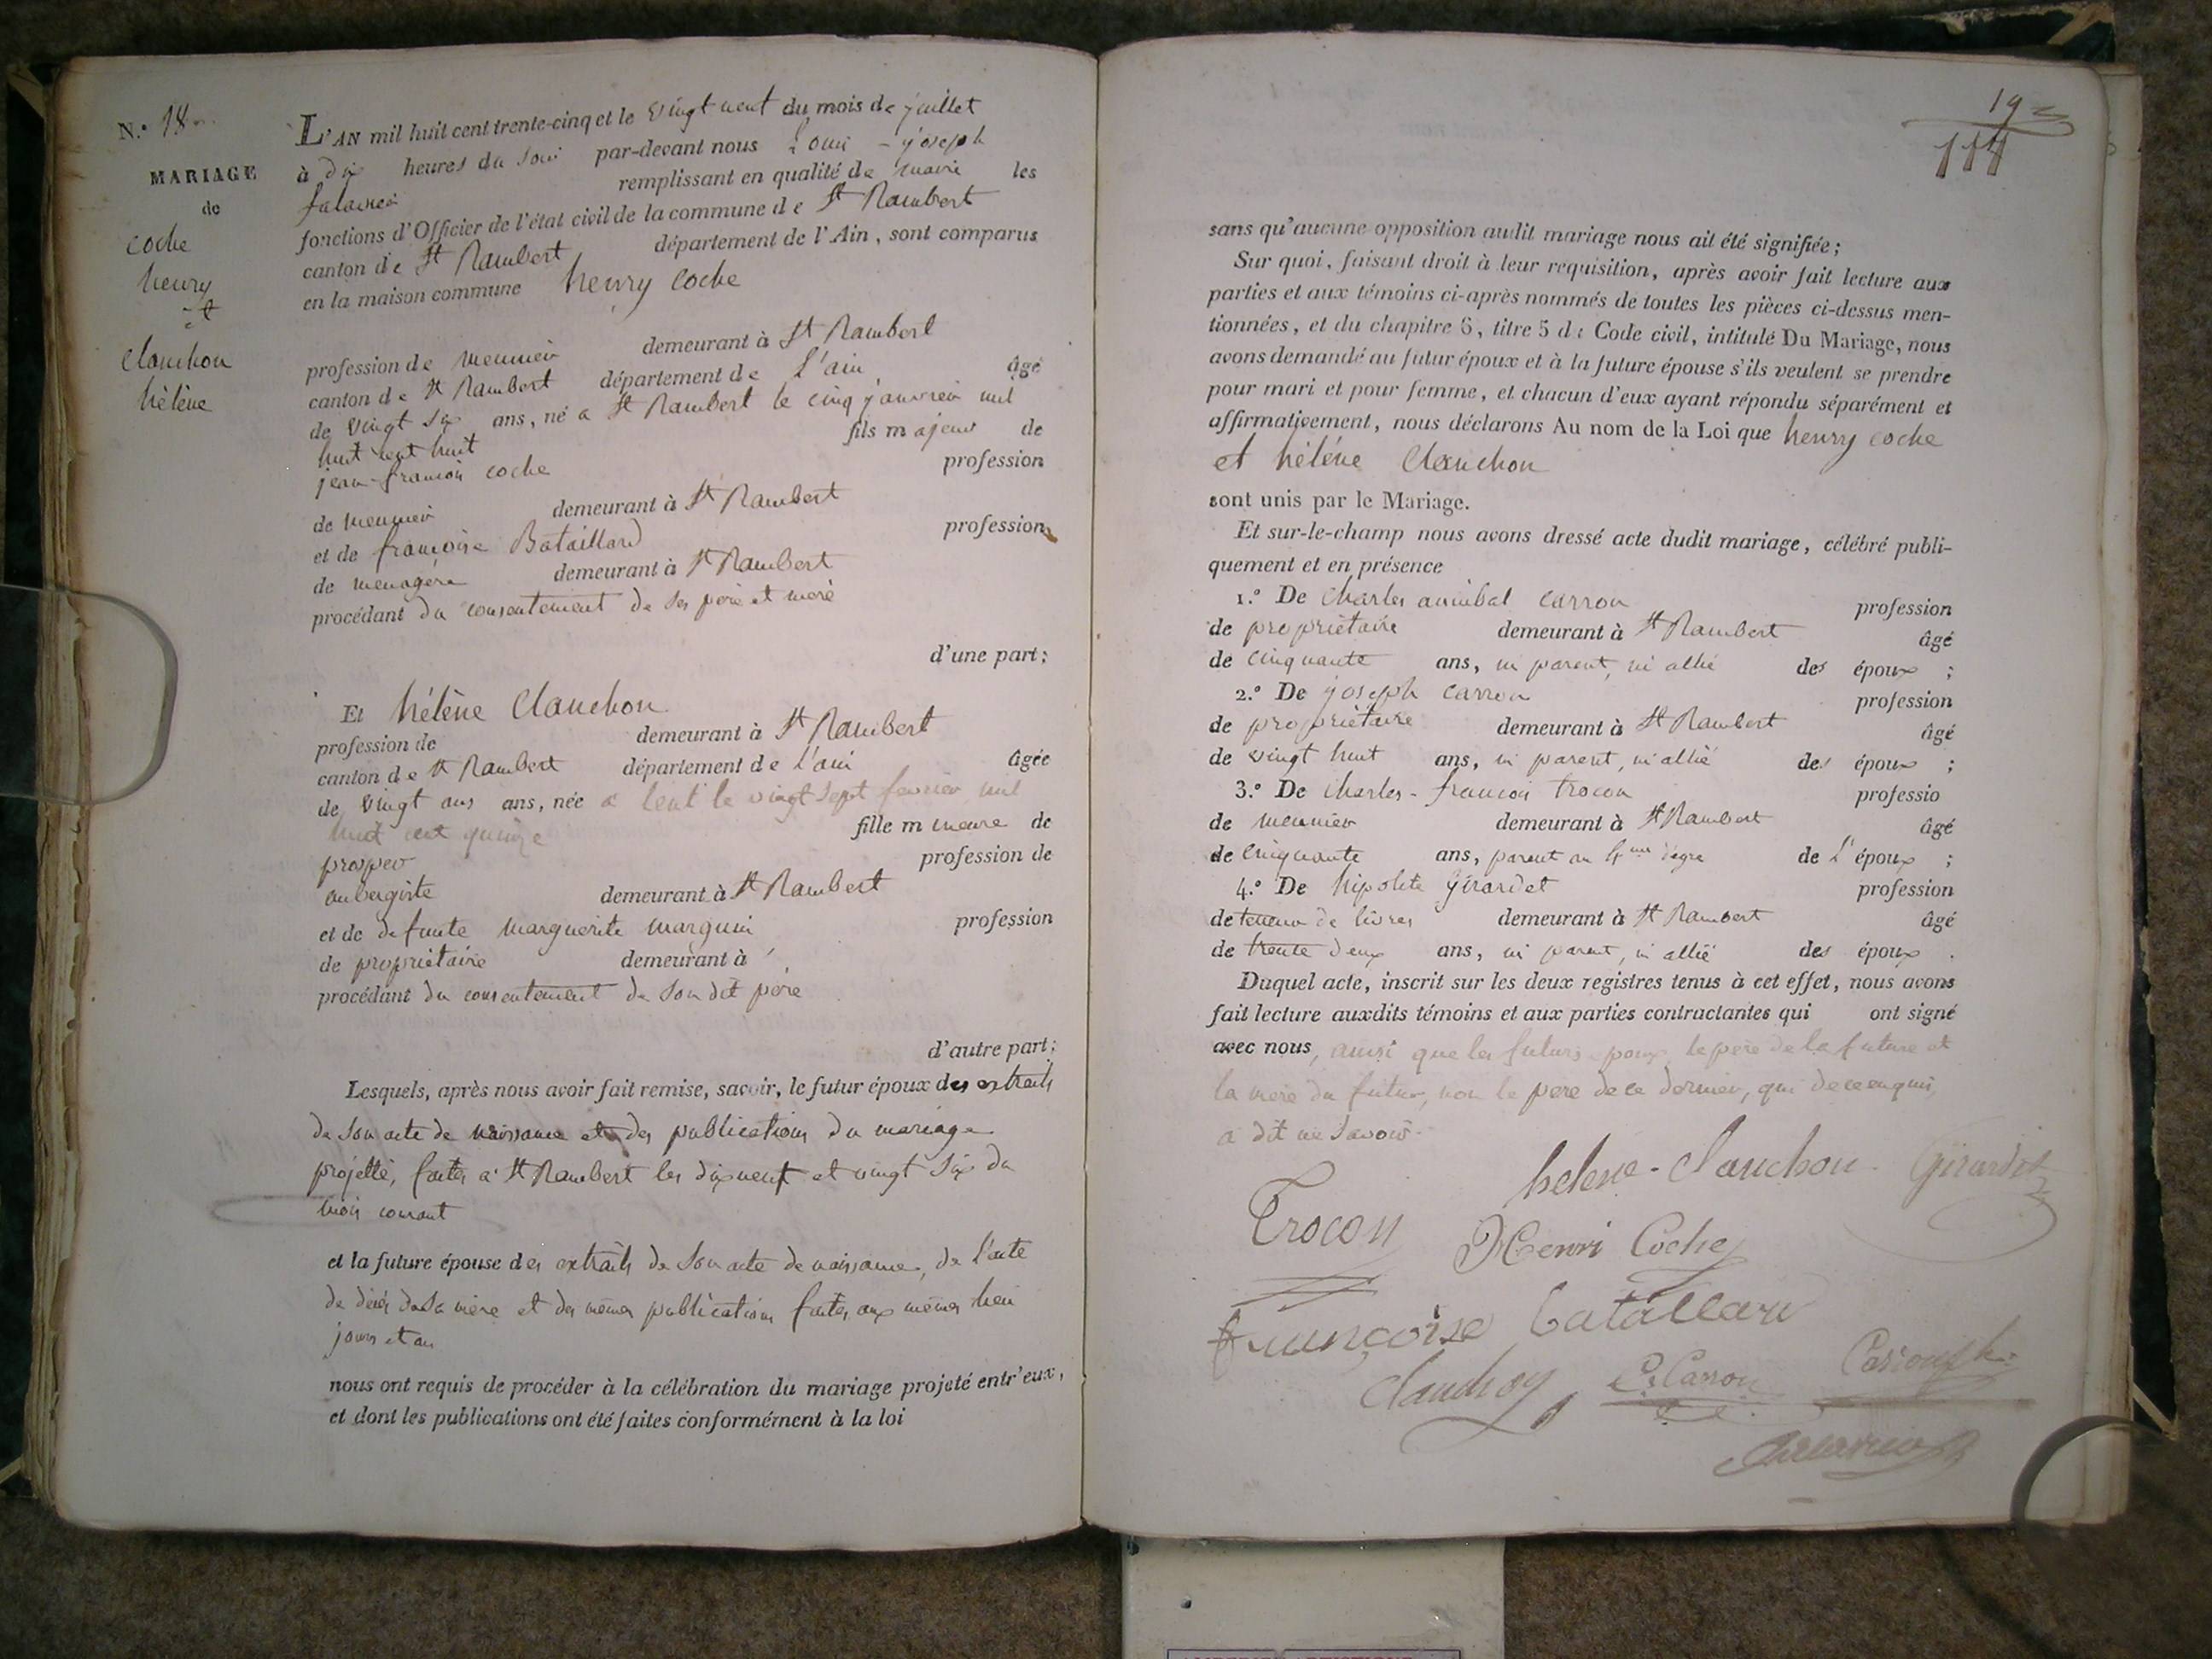 N.° 18
MARIAGE
de
coche
henry
et
Clanchon
hélène
L'AN mil huit cent trente-cinq et le vingt neuf du mois de juillet
à dix heures du soir par-devant nous Louis - joseph
remplissant en qualité de maire les
fonctions d'Officier de l'état civil de la commune de St Rambert
canton de St Rambert département de l'Ain, sont comparus
en la maison commune henry coche
profession de meunier demeurant à St Rambert
canton de St Rambert département de L'ain âgé
de vingt six ans, né a St Rambert le cinq janvier mil
huit cent huit fils majeur de
jean-francois coche profession
de meunier demeurant à St Rambert
et de francoise Bataillard profession
de menagère demeurant à St Rambert
procédant du consentement de ses père et mère
d'une part;
Et hélène Clanchon
profession de demeurant à St Rambert
canton de St Rambert département de L'ain âgée
de vingt ans ans, née a lent le vingt sept fevrier mil
huit cent quinze fille mineure de
prosper profession de
aubergiste demeurant à St Rambert
et de defunte marguerite marguin profession
de propriétaire demeurant à
procédant du consentement de son dit père
d'autre part;
Lesquels, après nous avoir fait remise, savoir, le futur époux des extraits
de son acte de naissance et des publications du mariage
projetté, faites a St Rambert les dix neuf et vingt six du
mois courant
et la future épouse des extraits de son acte de naissance, de l'acte
de décès de sa mère et des mêmes publications faites aux mêmes lieu
jours et an
nous ont requis de procéder à la célébration du mariage projeté entr'eux,
et dont les publications ont été faites conformément à la loi
19
114
sans qu'aucune opposition audit mariage nous ait été signifiée;
Sur quoi, faisant droit à leur requisition, après avoir fait lecture aux
parties et aux témoins ci-après nommés de toutes les pièces ci-dessus men-
tionnées, et du chapitre 6, titre 5 du Code civil, intitulé Du Mariage, nous
avons demandé au futur époux et à la future épouse s'ils veulent se prendre
pour mari et pour femme, et chacun d'eux ayant répondu séparément et
affirmativement, nous déclarons Au nom de la Loi que henry coche
et hélène Clanchon
sont unis par le Mariage.
Et sur-le-champ nous avons dressé acte dudit mariage, célébré publi-
quement et en présence
1.° De Charles annibal carron profession
de propriétaire demeurant à St Rambert âgé
de cinquante ans, ni parent, ni allié des époux ;
2.° De joseph carron profession
de propriétaire demeurant à St Rambert âgé
de vingt huit ans, ni parent, ni allié des époux ;
3.° De Charles - francois trocon professio
de meunier demeurant à St Rambert âgé
de cinquante ans, parent au 4me dégre de L'époux ;
4.° De hipolite girardet profession
de teneur de livres demeurant à St Rambert âgé
de trente deux ans, ni parent, ni allié des époux .
Duquel acte, inscrit sur les deux registres tenus à cet effet, nous avons
fait lecture auxdits témoins et aux parties contractantes qui ont signé
avec nous, ainsi que les futurs epoux, le père de la future et
la mère du futur, non le père de ce dernier, qui de ce enquis,
a dit ne savoir.
helene - Clanchon Girardet
Trocon Henri Coche
françoise batallard
Clanchon C. Carron Carron